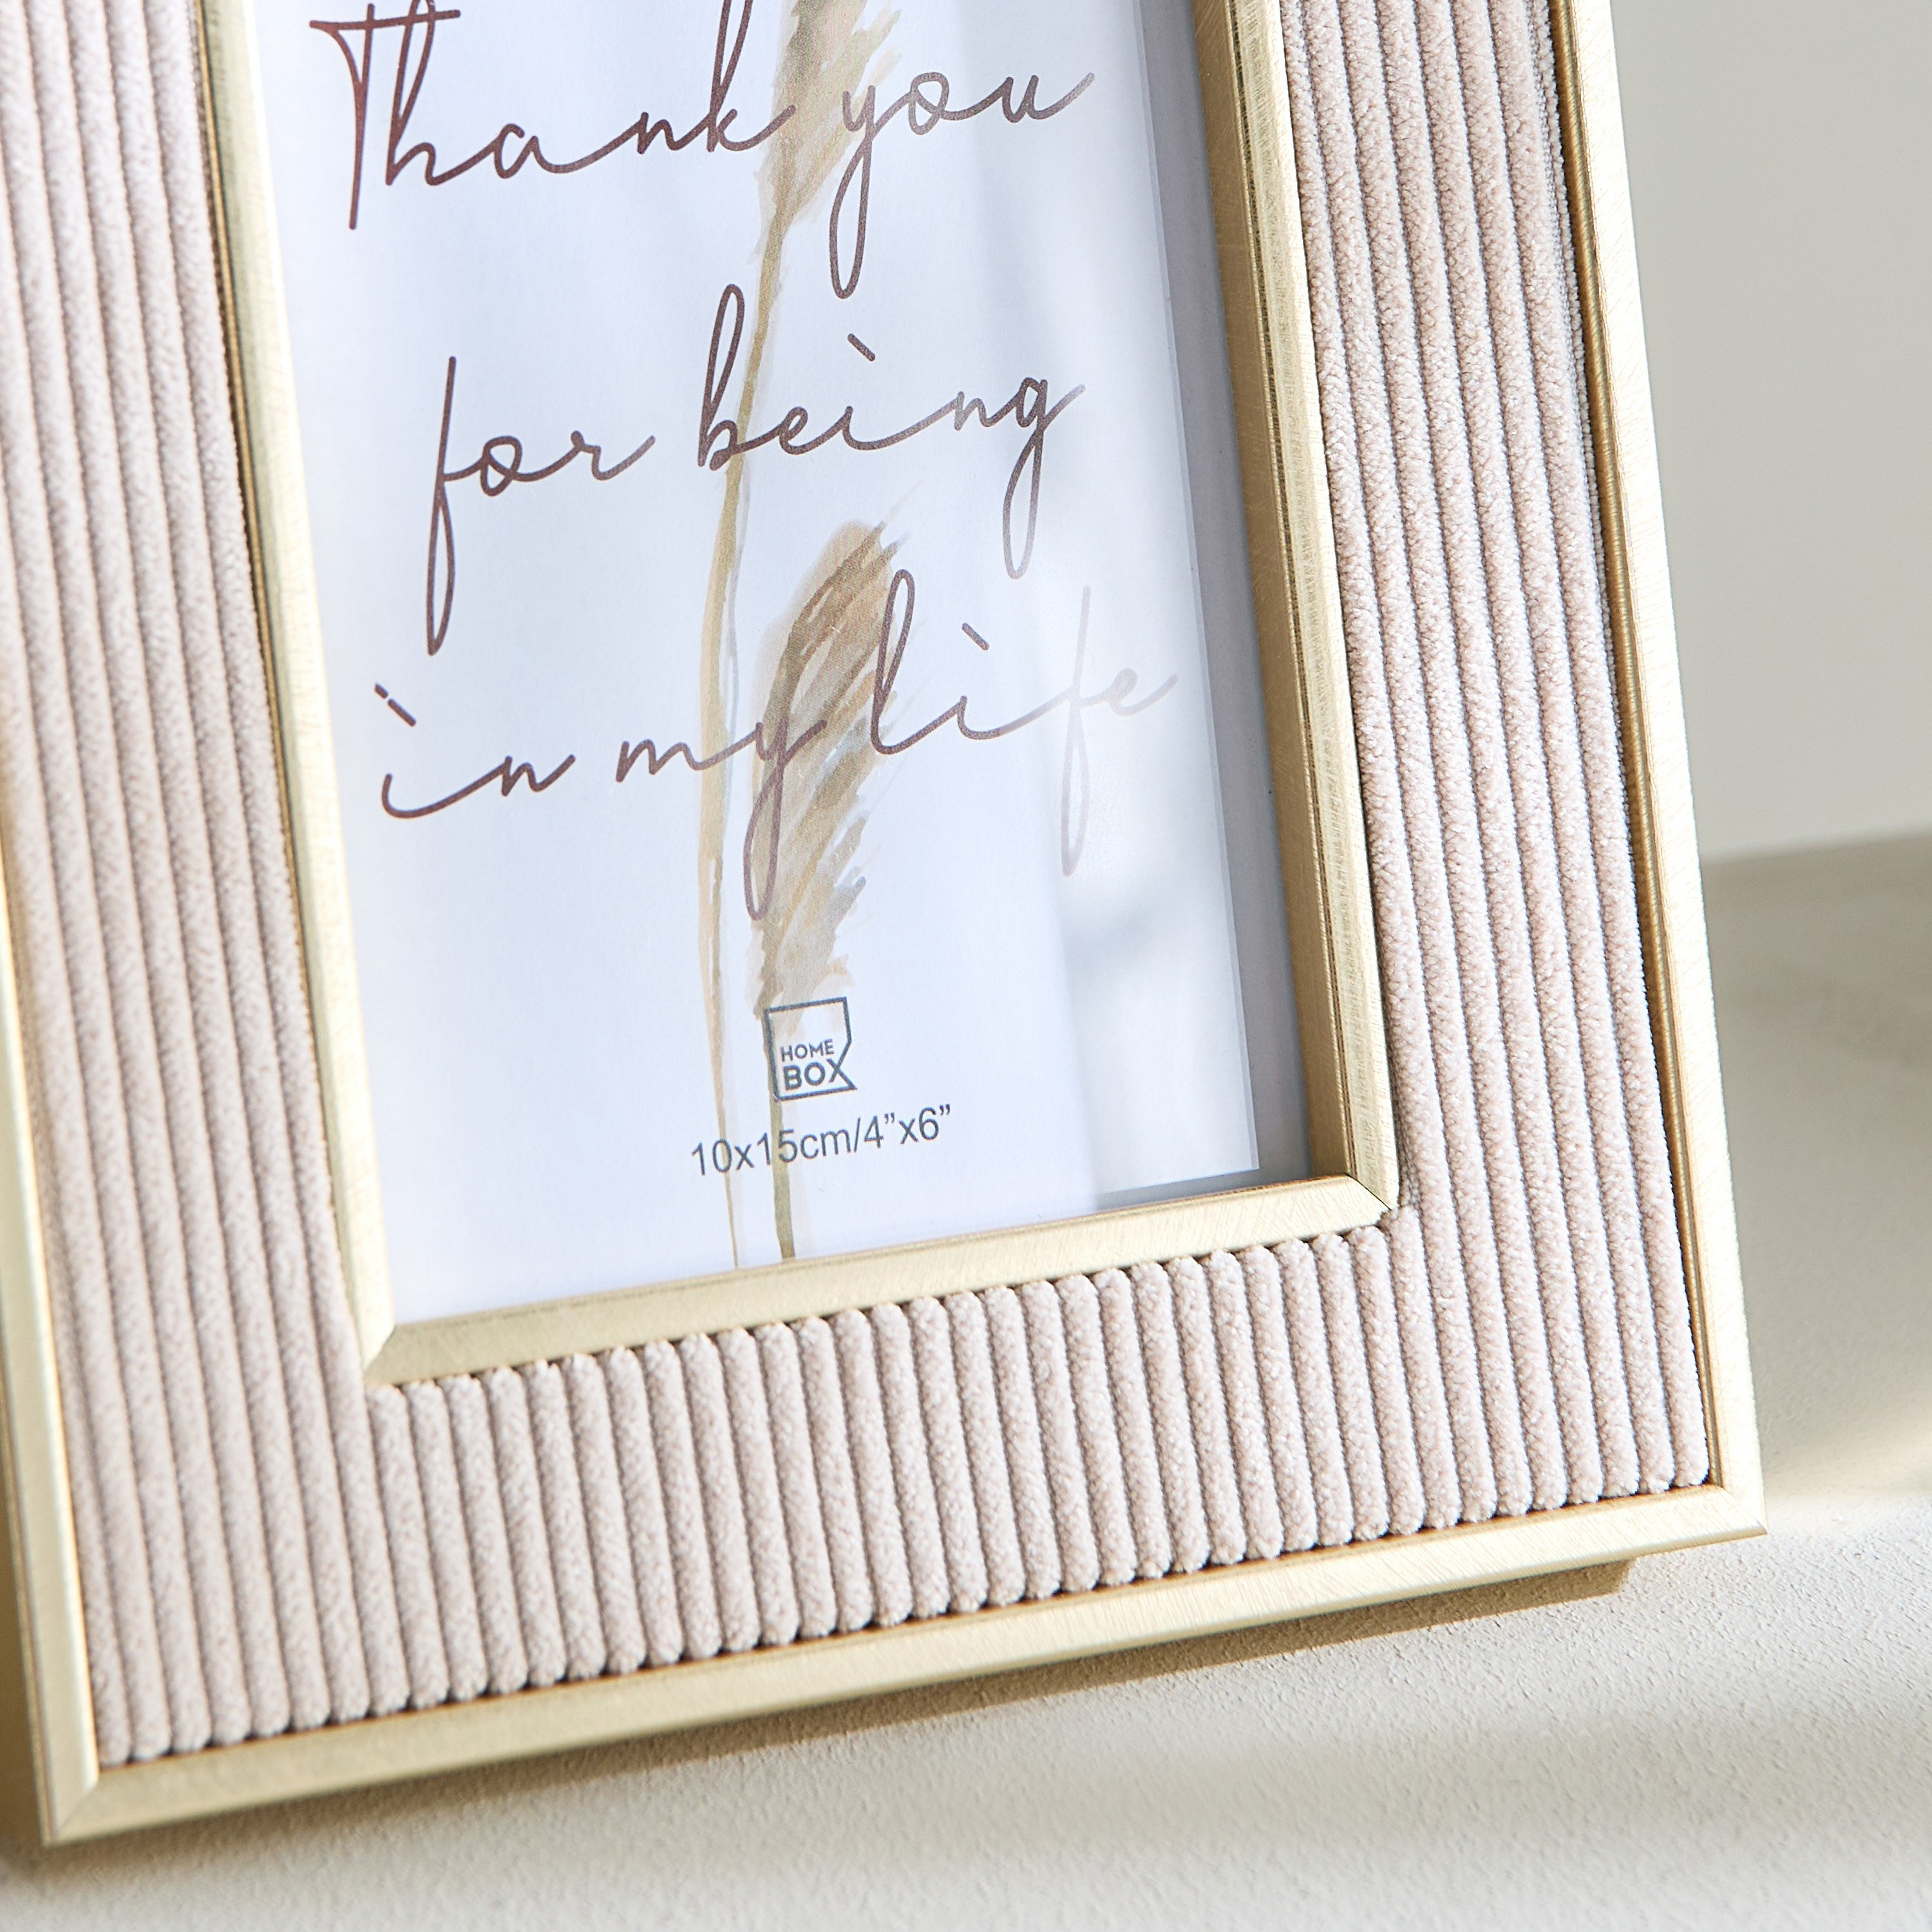 Thank you
for being
in my life
HOME
BOX
10x15cm/4”x6”